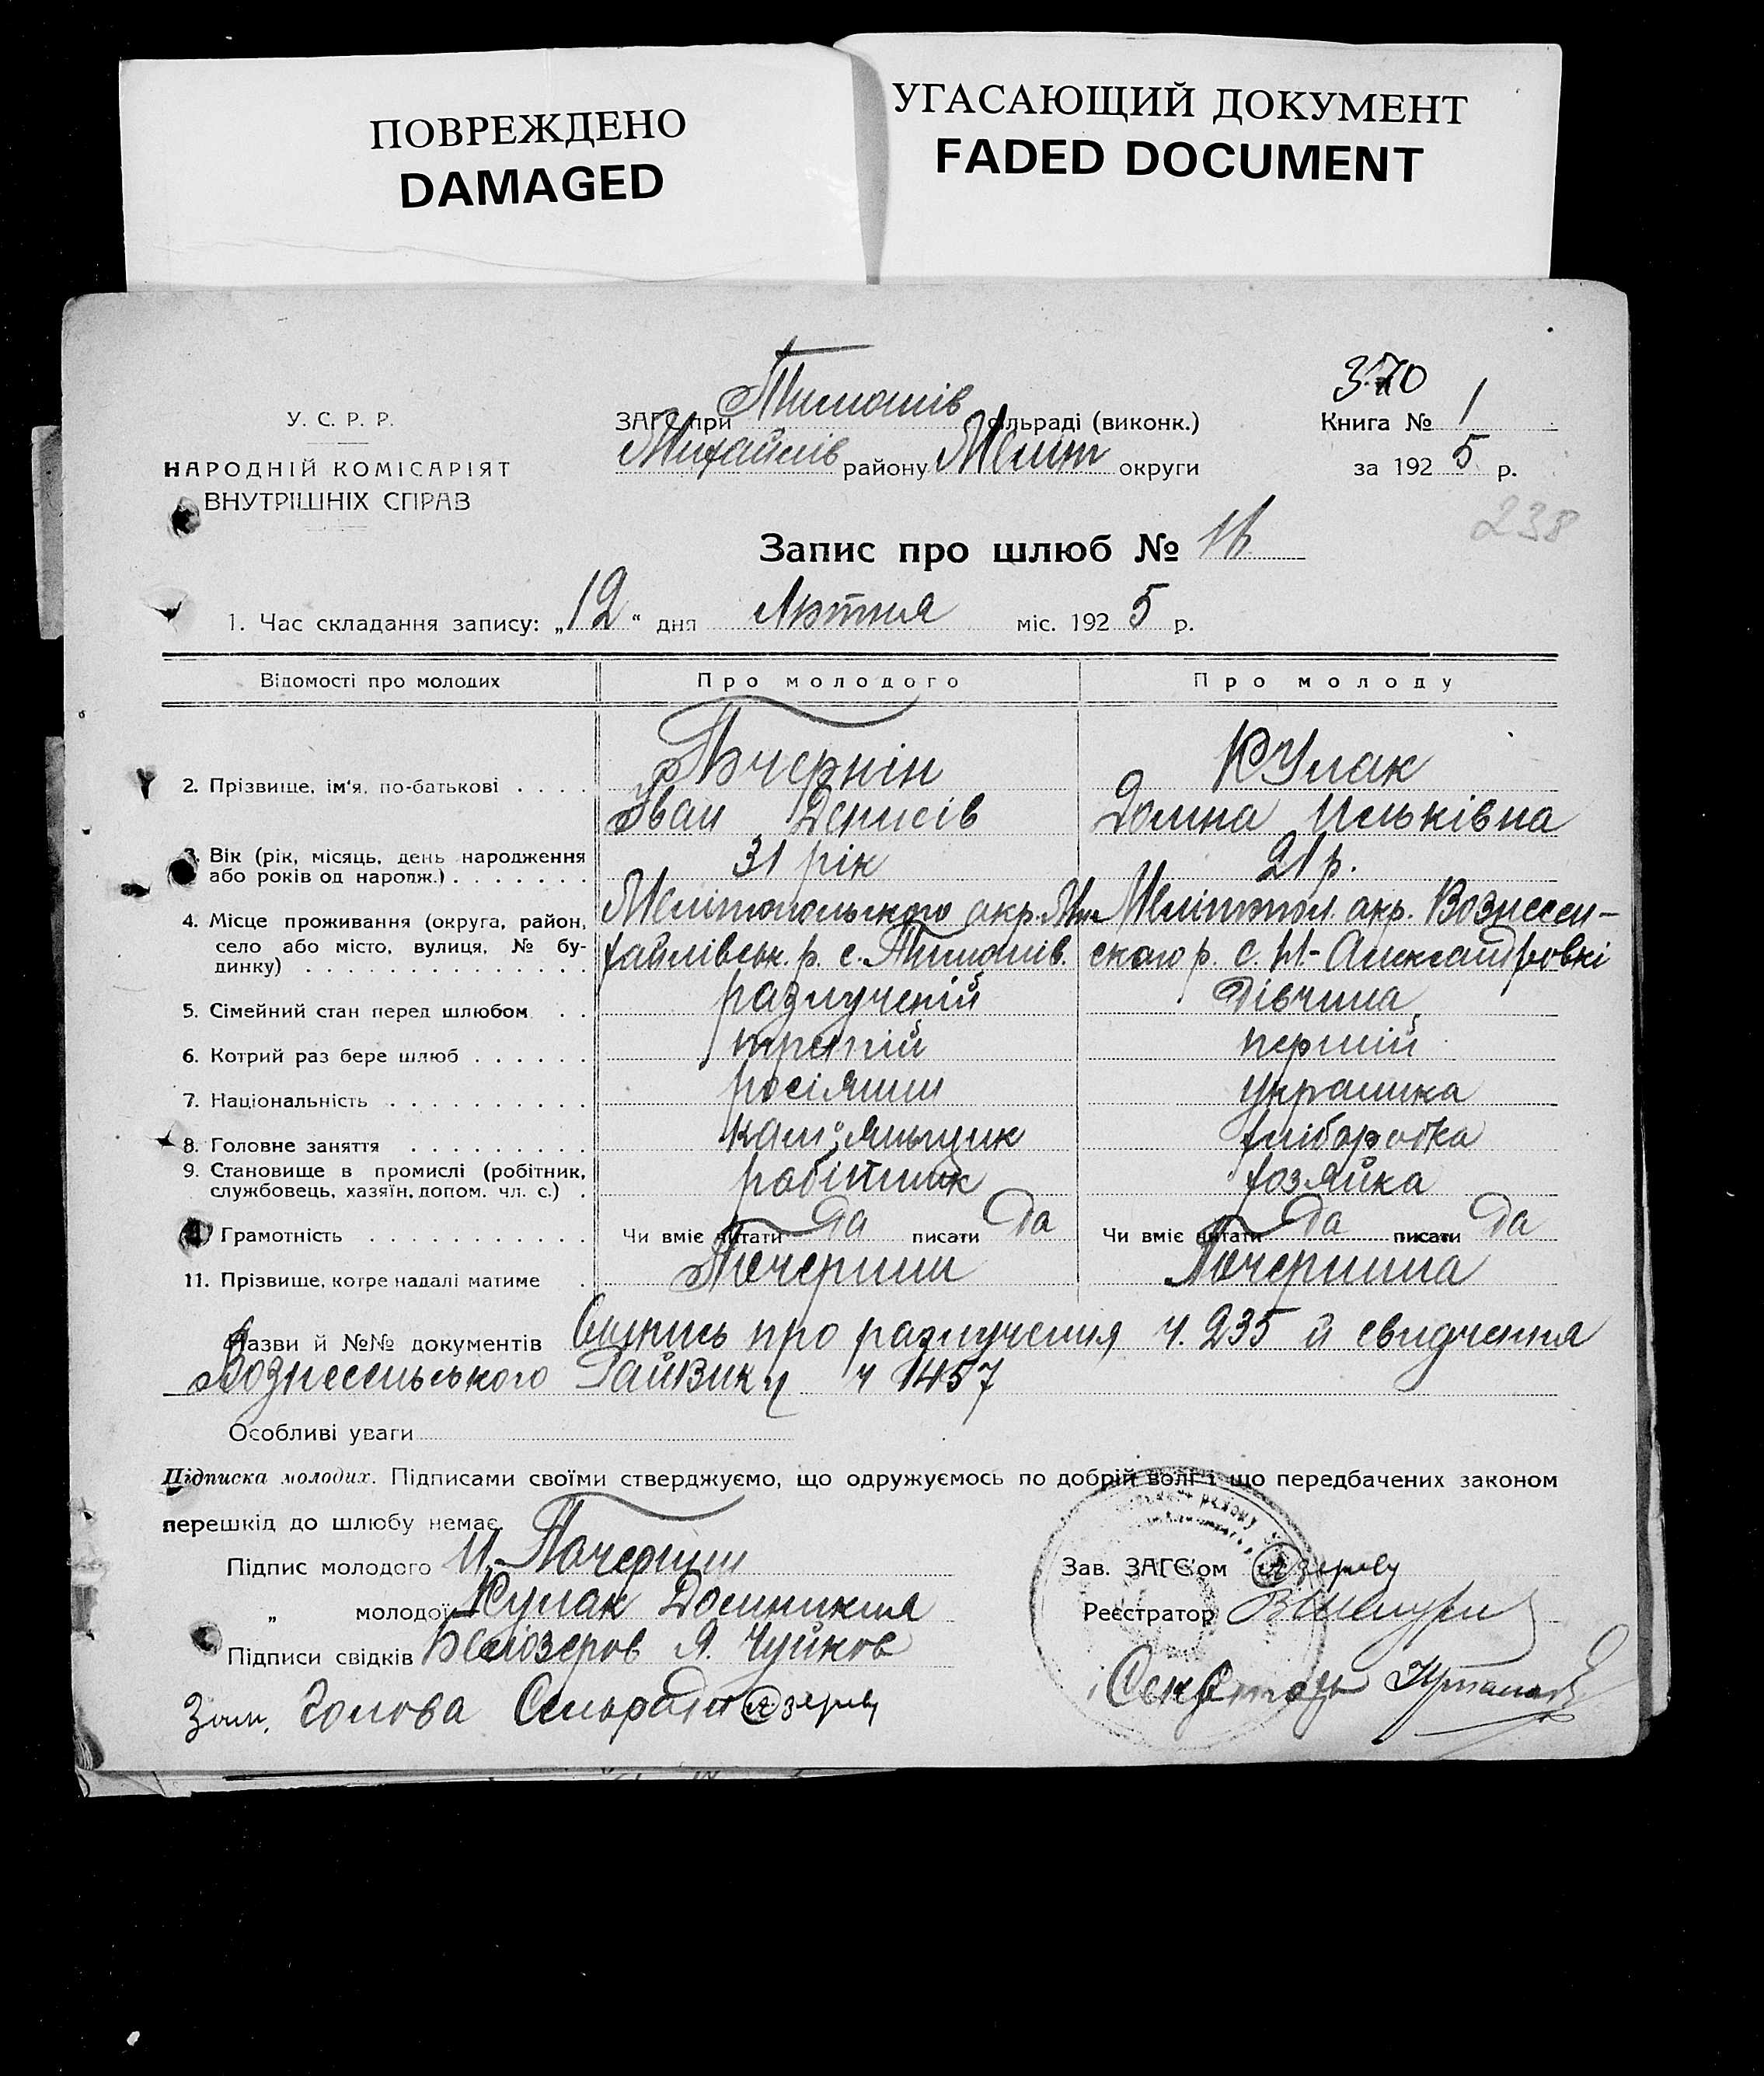 ПОВРЕЖДЕНО
DAMAGED
УГАСАЮЩИЙ ДОКУМЕНТ
FADED DOCUMENT
370
У. С. Р. Р.
НАРОДНІЙ КОМІСАРІЯТ
ВНУТРІШНІХ СПРАВ
ЗАГС при Тимошів сільраді (виконк.)
Михайлів району Меліт округи
Книга № 1
за 1925 р.
238
Запис про шлюб № 16
1. Час складання запису: „12“ дня Лютня міс. 1925 р.
Відомості про молодих Про молодого Про молоду
2. Прізвище, ім'я, по-батькові Кулак
Іван Денисів Домна Ильківна
3. Вік (рік, місяць, день народження або років од народж.) 31 рік 21 р.
4. Місце проживання (округа, район, село або місто, вулиця, № будинку) Мелітопольского окр. Ми Мелітопол. окр. Вознесен-
хайлівськ. р. с. Тимошів. ского р. с. Н-Александровкі
5. Сімейний стан перед шлюбом разлученій дівчина
6. Котрий раз бере шлюб третій першій
7. Національність росіянин українка
8. Головне заняття кам'яньщик хліборобка
9. Становище в промислі (робітник, службовець, хазяїн, допом. чл. с.) робітник хозяйка
Грамотність Чи вміє читати да писати да Чи вміє читати да писати да
11. Прізвище, котре надалі матиме Почернин Почернина
Назви й №№ документів Випись про разлучення ч. 235 й свидчення
Вознесенського Райвику ч 1457
Особливі уваги
Підписка молодих. Підписами своїми стверджуємо, що одружуємось по добрій волі і що передбачених законом
перешкід до шлюбу немає.
Підпис молодого И. Почернин
„ молодої Кулак Домникия
Підписи свідків Белозеров Я. Чуйков
Зам. Голова Сельради
Зав. ЗАГС'ом
Реєстратор
Секретарь